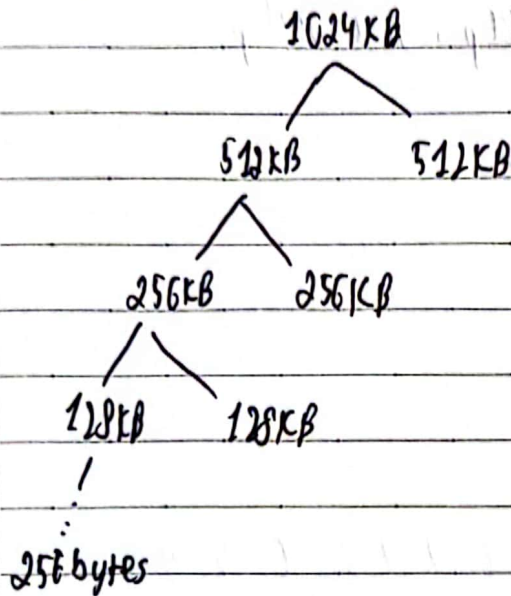 1024KB
512KB 512KB
256KB 256KB
128KB 128KB
256 bytes